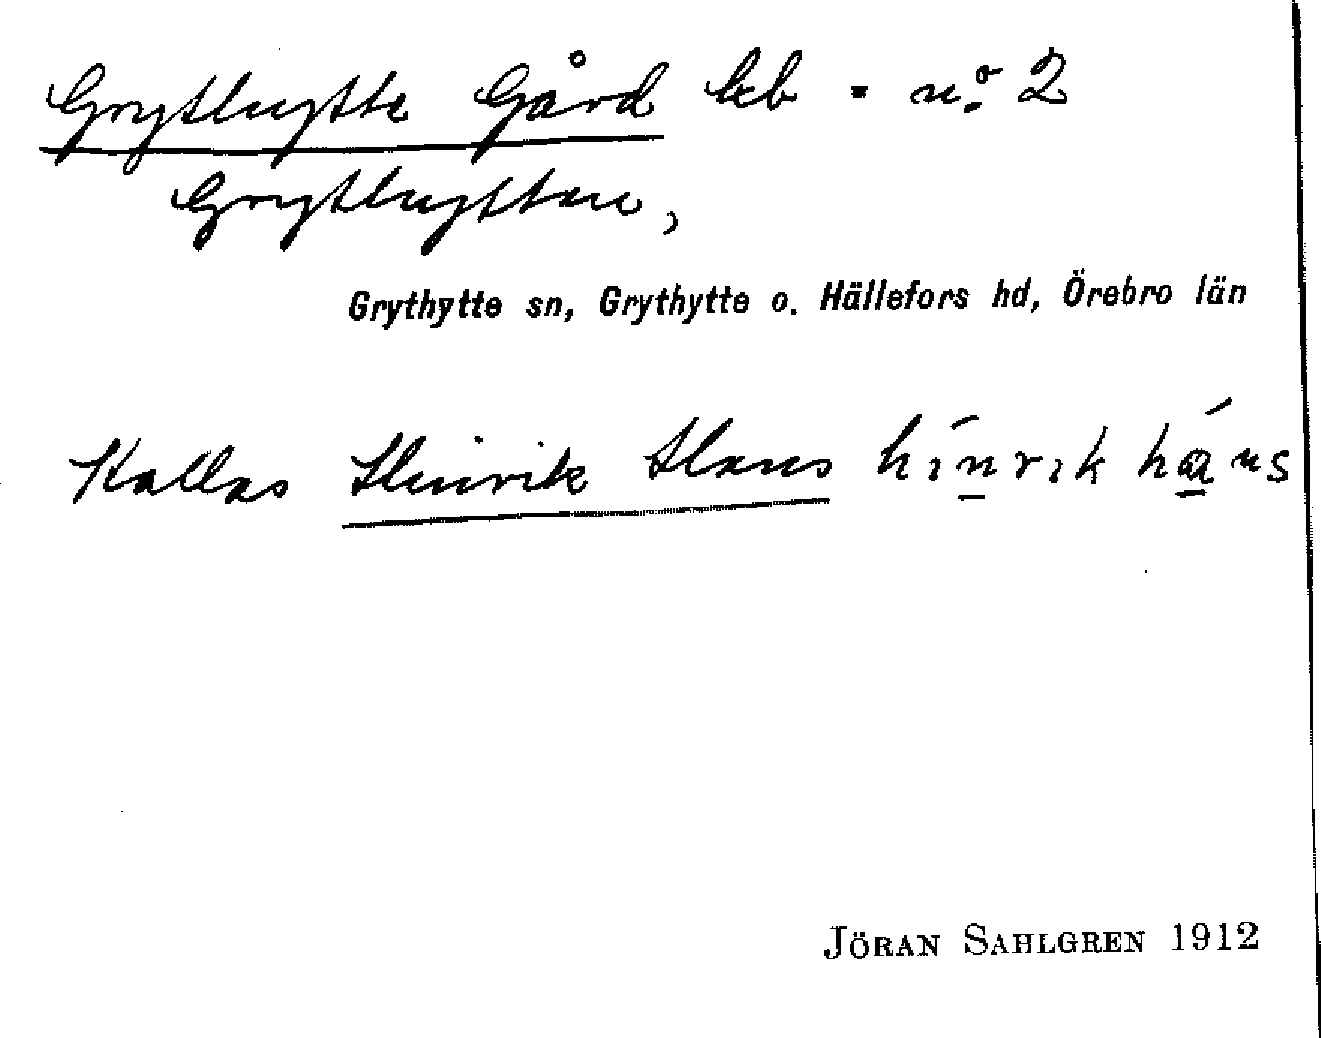 Grythytte Gård hb. no. 2
Grythyttan,
Grythytte sn, Grythytte o. Hällefors hd, Örebro län
Kallas Hinrik Hans hínrik háns
JÖRAN SAHLGREN 1912